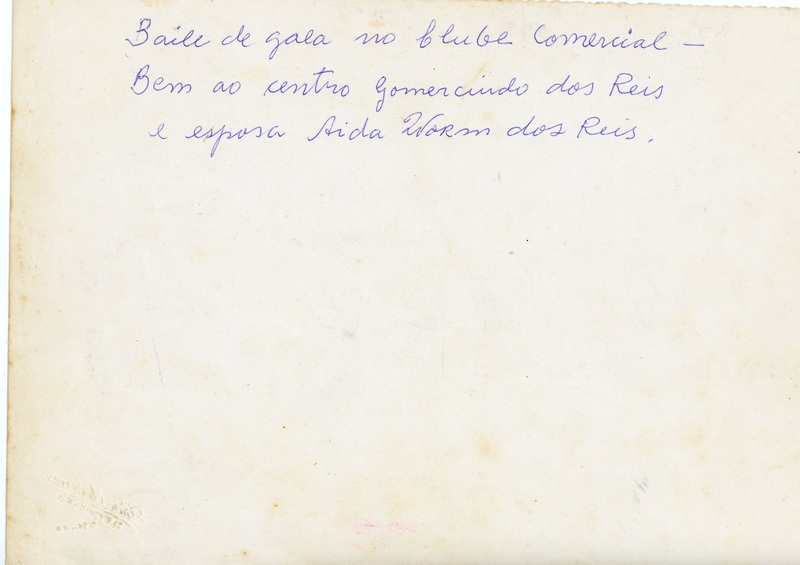 Baile de gala no Clube Comercial –
Bem ao centro Gomercindo dos Reis
e esposa Aida Worm dos Reis.